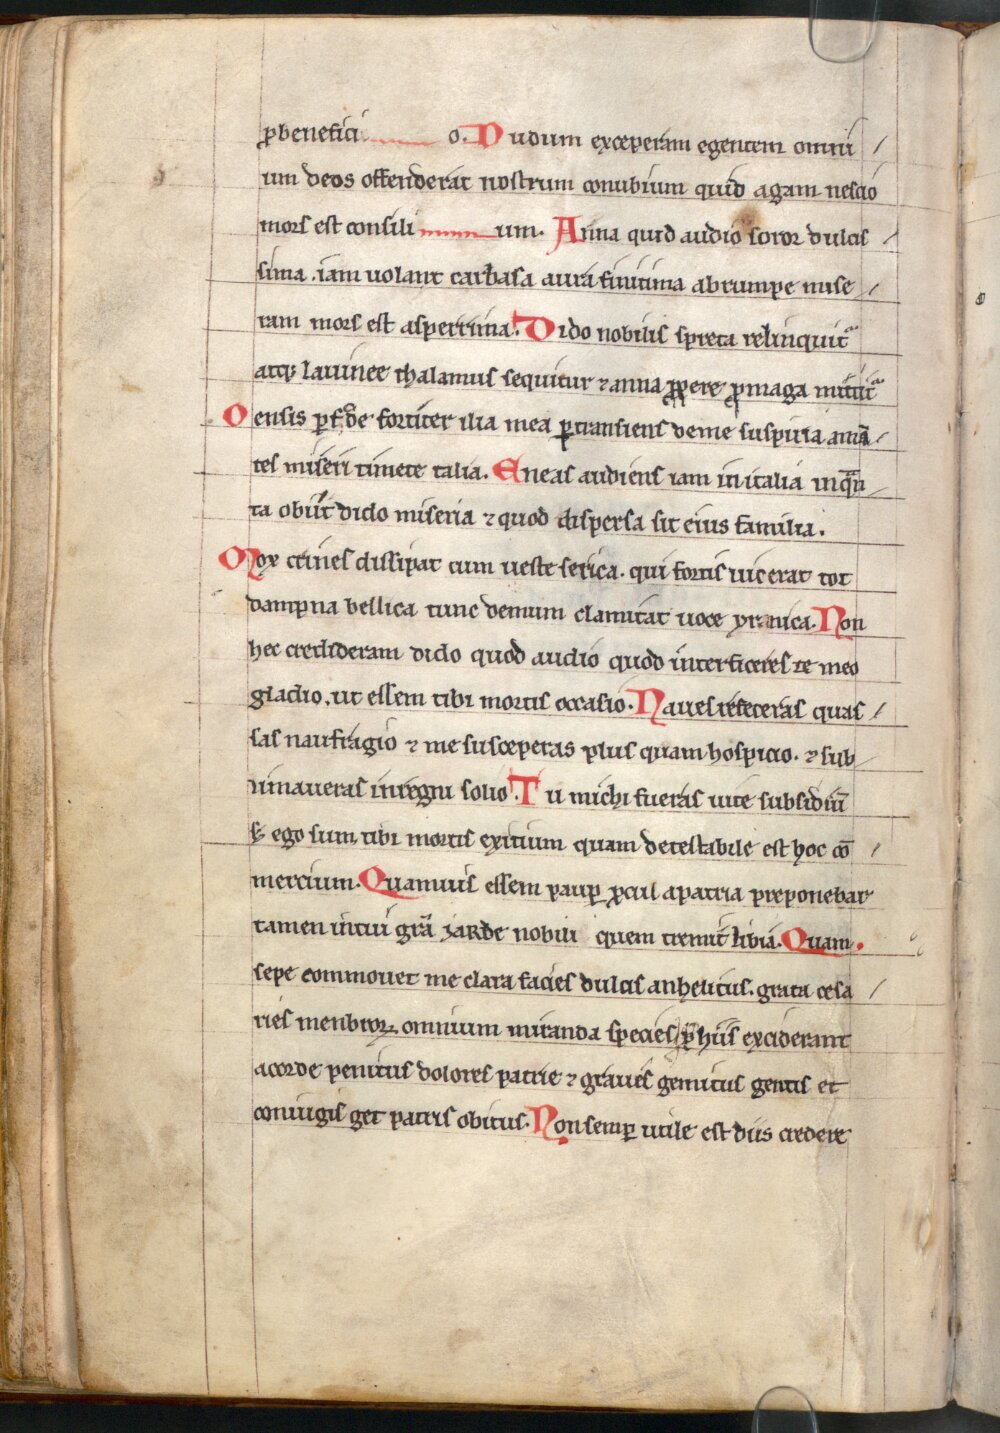 ꝓbenefici o. Dudum exceperam egentem omni
um deos offenderat nostrum conubium quid agam nescio
mors est consili um. Anna quid audio soror dulcis
sima . iam uolant carbasa aura finitima abrumpe mise
ram mors est asperrima. Dido nobilis spreta relinquitᷓ
atqꝫ lauinee thalamus sequitur ⁊ anna ꝓpere ꝓ maga mittitᷓ
Oensis ꝑfode fortiter ilia mea ꝑtransiens deme suspiria amā
tes miseri timete talia. Eneas audiens iam in italia inqͣn
ta obiit dido miseria ⁊ quod dispersa sit eius familia.
Mox crines dissipat cum ueste serica. qui fortis uicerat tot
dampna bellica tunc demum clamitat uoce yranica. Non
hec credideram dido quod audio quod interficeres te meo
gladio. ut essem tibi mortis occasio. Naues refeceras quas
sas naufragio ⁊ me susceperas plus quam hospicio. ⁊ sub
limaueras in regni solio. Tu michi fueras uite subsidiū
sꝫ ego sum tibi mortis exitium quam detestabile est hoc cō
mercium. Quamuis essem pauꝑ ꝓcul a patria preponebar
tamen intui grā jarbe nobili quem tremit libia. Quam.
sepe commouet me clara facies dulcis anhelitus. grata cesa
ries menbroꝝ omnium miranda species ꝑ hiis exciderant
acorde penitus dolores patrie ⁊ graues gemitus gentis et
coniugis get patris obitus. Non semꝑ utile est diis credere